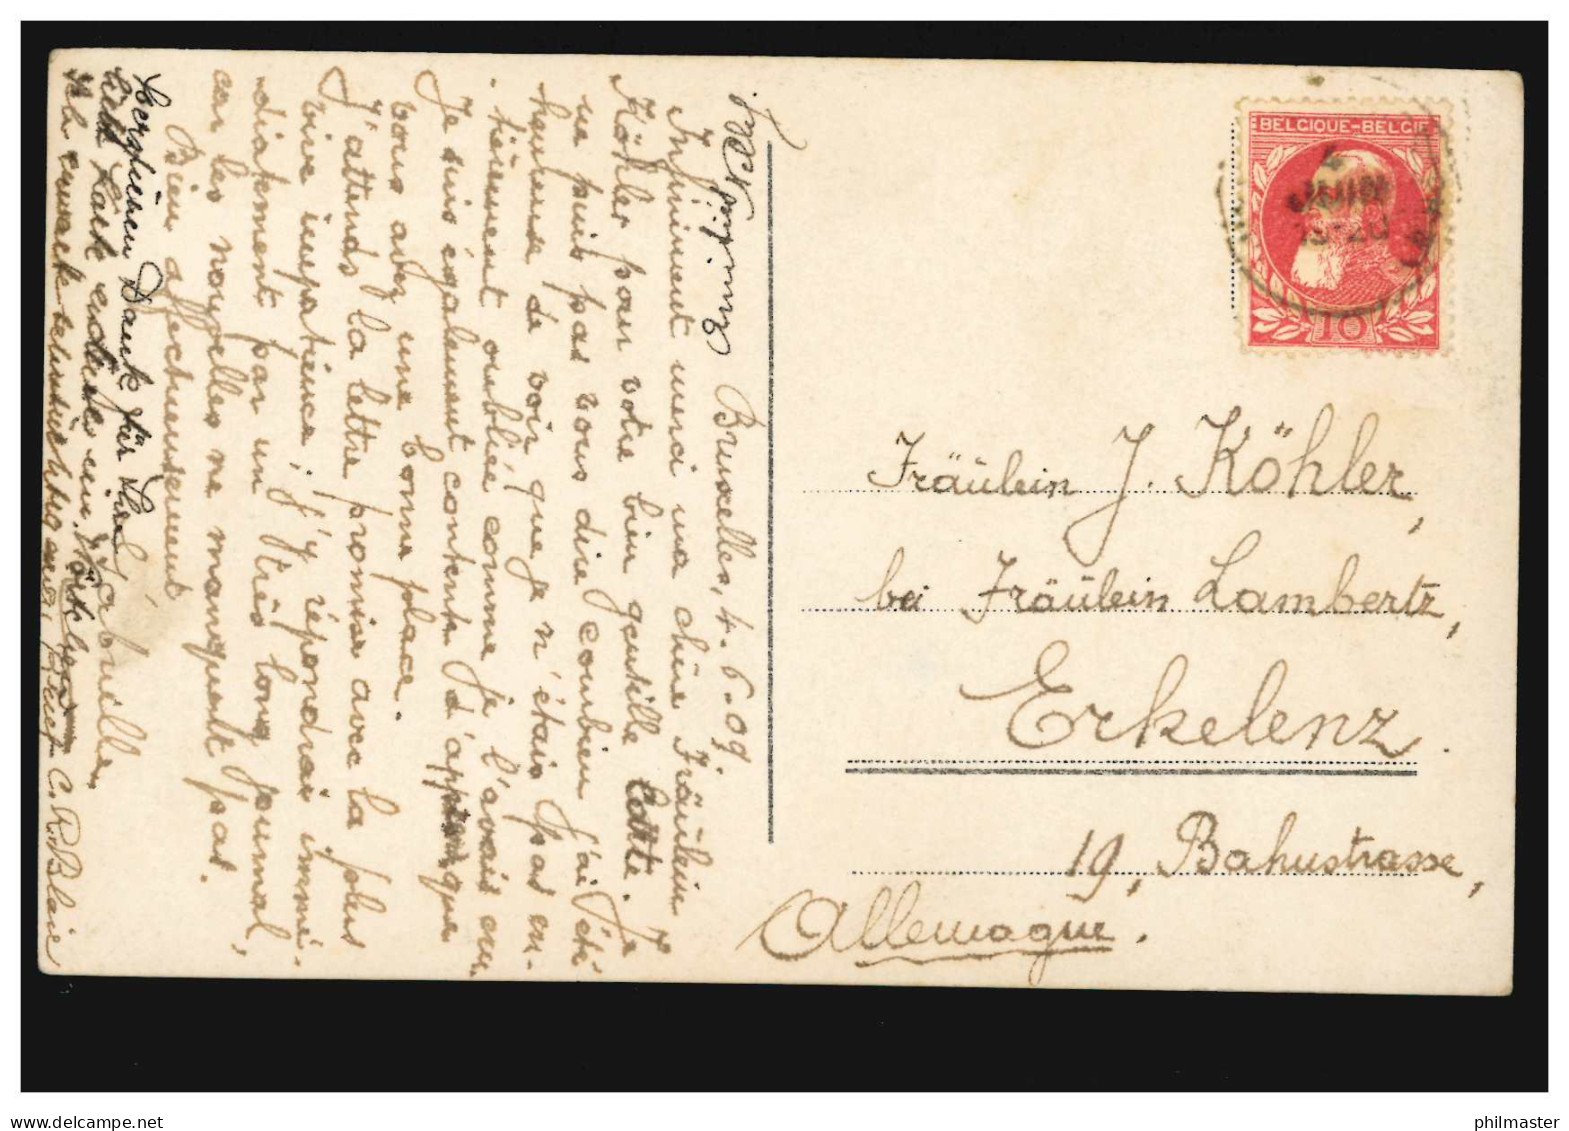 Bruxelles, 4.6.09.
Infiniment merci ma chère Fräulein
Köhler pour votre bien gentille lettre. Je
ne puis pas vous dire combien j'ai été
heureuse de voir que je n'étais pas en-
tièrement oubliée comme je l'avais cru.
Je suis également contente d'apprendre que
vous avez une bonne place.
J'attends la lettre promise avec la plus
vive impatience; j'y répondrai immé-
diatement par un très long journal,
car les nouvelles ne manquent pas.
Bien affectueusement
Gabrielle.
Herzlichen Dank für
C. R. Blaise
BELGIQUE-BELGIE
4
JUIN
10
Fräulein J. Köhler,
bei Fräulein Lambertz,
Erkelenz.
19, Bahnstrasse,
Allemagne.
(c) www.delcampe.net
philmaster